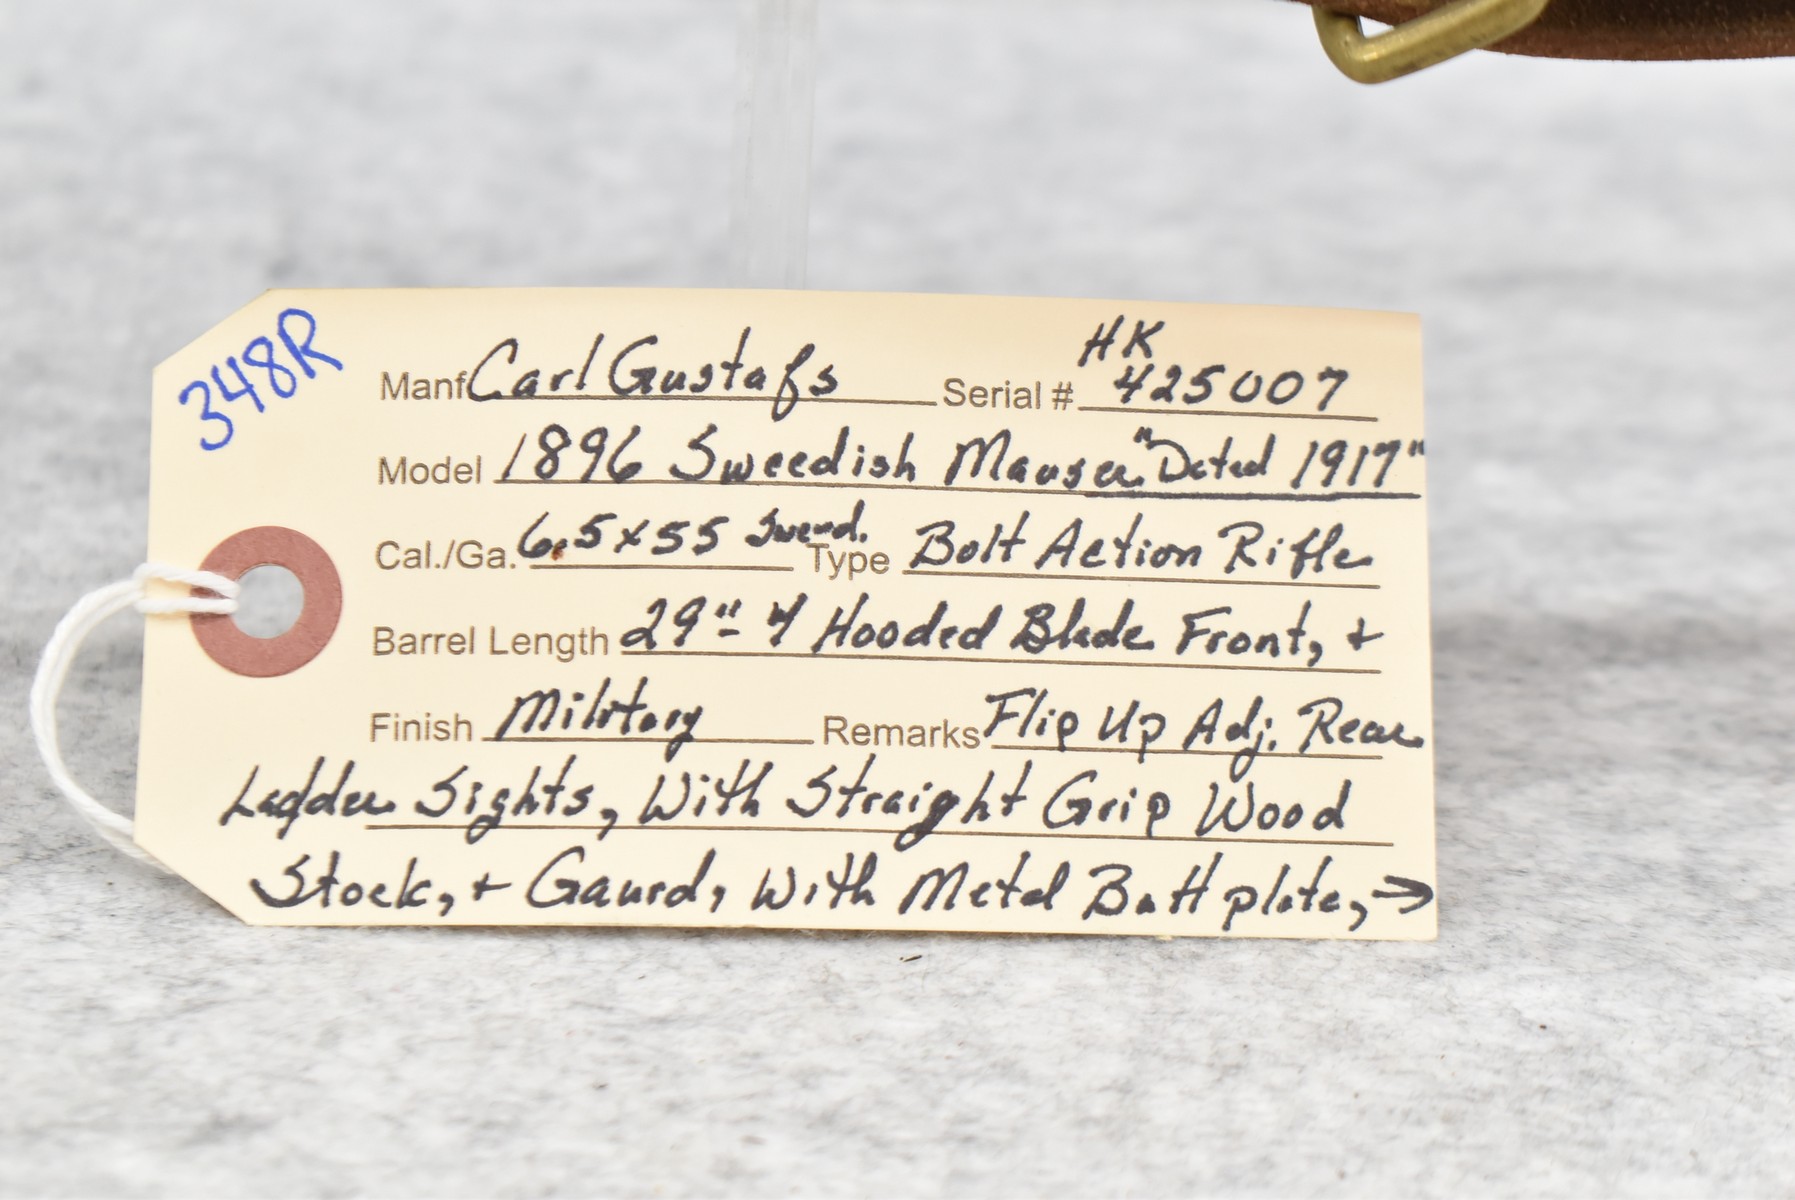 348R
HK
Manf Carl Gustafs Serial # 425007
Model 1896 Sweedish Mauser "Dated 1917"
Cal./Ga. 6.5x55 Swed. Type Bolt Action Rifle
Barrel Length 29"- 4 Hooded Blade Front, +
Finish Military Remarks Flip Up Adj. Rear
Ladder Sights, With Straight Grip Wood
Stock, + Gaurd, With Metal Butt plate, →